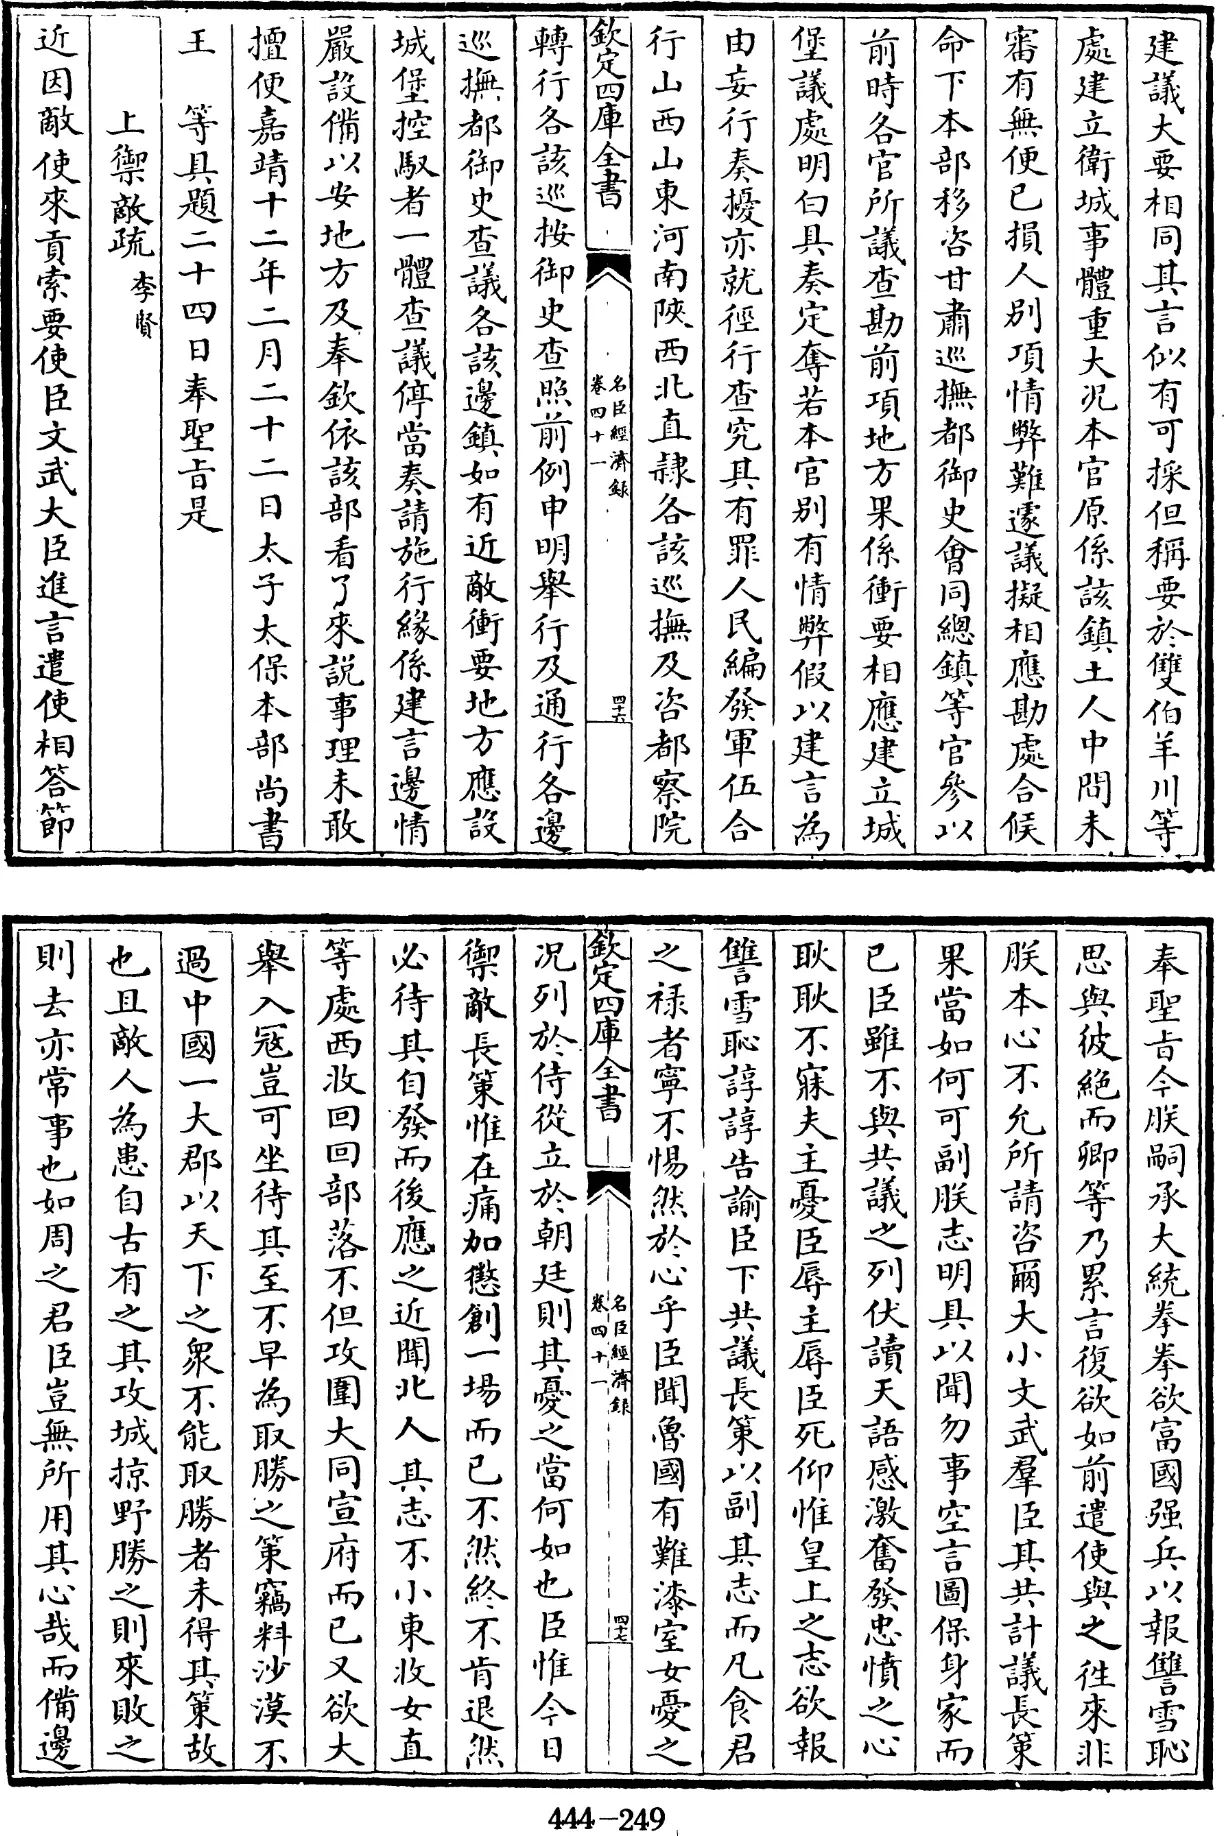 建議大要相同其言似有可採但稱要於雙伯羊川等
處建立衛城事體重大况本官原係該鎮土人中間未
審有無便已損人別項情弊難遽議擬相應勘處合候
命下本部移咨甘肅巡撫都御史會同總鎮等官參以
前時各官所議查勘前項地方果係衝要相應建立城
堡議處明白具奏定奪若本官別有情弊假以建言為
由妄行奏擾亦就徑行查究具有罪人民編發軍伍合
行山西山東河南陝西北直隷各該巡撫及咨都察院
欽定四庫全書
名臣經濟録
卷四十一
四十六
轉行各該巡按御史查照前例申明舉行及通行各邊
巡撫都御史查議各該邊鎮如有近敵衝要地方應設
城堡控馭者一體查議停當奏請施行緣係建言邊情
嚴設備以安地方及奉欽依該部看了來説事理未敢
擅便嘉靖十二年二月二十二日太子太保本部尚書
王　等具題二十四日奉聖旨是
上禦敵疏 李賢
近因敵使來貢索要使臣文武大臣進言遣使相答節
奉聖旨今朕嗣承大統拳拳欲富國强兵以報讐雪恥
思與彼絶而卿等乃累言復欲如前遣使與之徃來非
朕本心不允所請咨爾大小文武羣臣其共計議長策
果當如何可副朕志明具以聞勿事空言圖保身家而
已臣雖不與共議之列伏讀天語感激奮發忠憤之心
耿耿不寐夫主憂臣辱主辱臣死仰惟皇上之志欲報
讐雪恥諄諄告諭臣下共議長策以副其志而凡食君
之禄者寧不惕然於心乎臣聞魯國有難漆室女憂之
欽定四庫全書
名臣經濟録
卷四十一
四十七
况列於侍從立於朝廷則其憂之當何如也臣惟今日
禦敵長策惟在痛加懲創一場而已不然終不肯退然
必待其自發而後應之近聞北人其志不小東收女直
等處西收回回部落不但攻圍大同宣府而已又欲大
舉入冦豈可坐待其至不早為取勝之策竊料沙漠不
過中國一大郡以天下之衆不能取勝者未得其策故
也且敵人為患自古有之其攻城掠野勝之則來敗之
則去亦常事也如周之君臣豈無所用其心哉而備邊
444-249